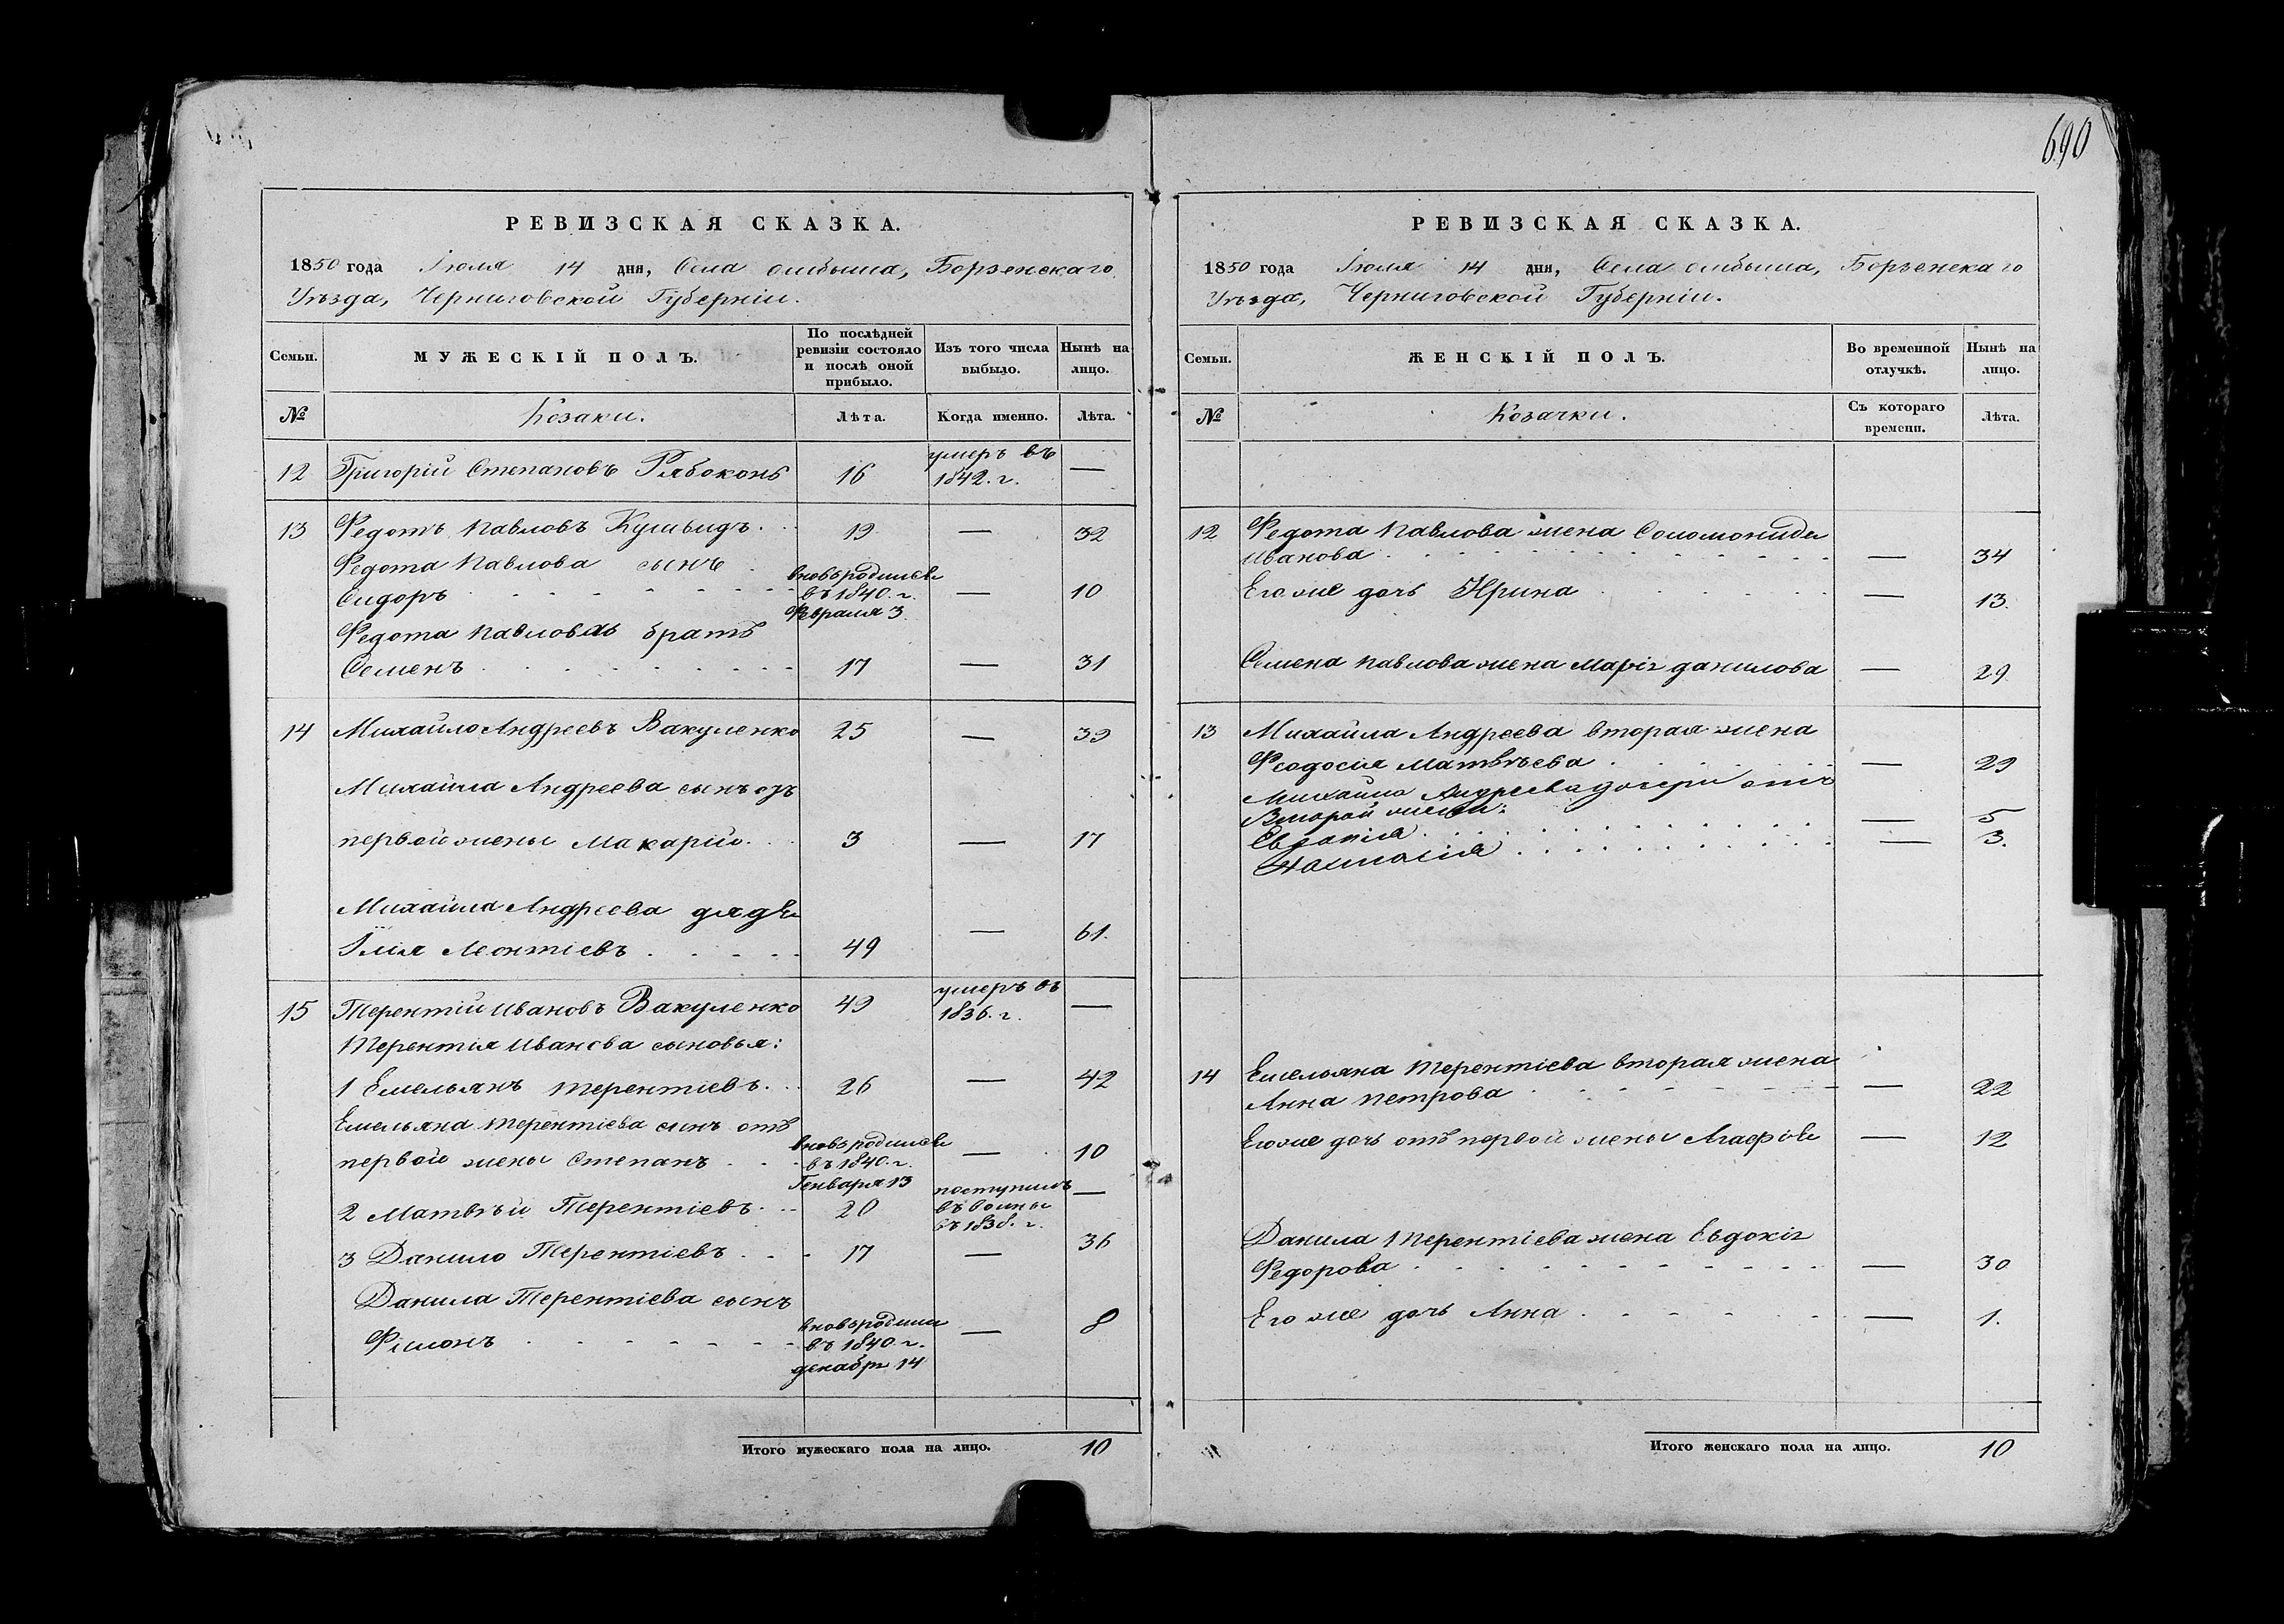 690
РЕВИЗСКАЯ СКАЗКА.
1850 года Іюля 14 дня, Села Омбыша, Борзенскаго
Уѣзда, Черниговской Губерніи.
Семьи.
МУЖЕСКІЙ ПОЛЪ.
По послѣдней
ревизіи состояло
и послѣ оной
прибыло.
Изъ того числа
выбыло.
Нынѣ на
лицо.
№
Козаки.
Лѣта.
Когда именно.
Лѣта.
12 Григорій Степановъ Рябоконь 16 умеръ въ 1842. г. —
13 Федотъ Павловъ Кушвидъ. 19 — 32
Федота Павлова сынъ
Сидоръ вновьродился въ 1840. г. Февраля 3. — 10
Федота Павлова братъ
Семенъ 17 — 31
14 Михайло Андреевъ Вакуленко 25 — 39
Михайла Андреева сынъ отъ
первой жены Макарій 3 — 17
Михайла Андреева дядя
Илія Леонтіевъ 49 — 61.
15 Терентій Ивановъ Вакуленко 49 умеръ въ 1836. г. —
Терентія Иванова сыновья:
1 Емельянъ Терентіевъ. 26 — 42
Емельяна Терентіева сынъ отъ
первой жены Степанъ вновьродился въ 1840. г. Генваря 13 — 10
2 Матвѣй Терентіевъ 20 поступилъ въ воины въ 1838. г. —
3 Данило Терентіевъ 17 — 36
Данила Терентіева сынъ
Філонъ вновьродился въ 1840. г. декабря 14 — 8
Итого мужескаго пола на лицо. 10
РЕВИЗСКАЯ СКАЗКА.
1850 года Іюля 14 дня, Села Омбыша, Борзенскаго
Уѣзда, Черниговской Губерніи.
Семьи.
ЖЕНСКІЙ ПОЛЪ.
Во временной
отлучкѣ.
Нынѣ на
лицо.
№
Козачки.
Съ котораго
времени.
Лѣта.
12 Федота Павлова жена Соломонида
Иванова — 34
Его же дочь Ирина — 13.
Семена Павлова жена Марія Данилова — 29
13 Михайла Андреева вторая жена
Феодосія Матвѣева — 29
Михайла Андреева дочери отъ
второй жены:
Евдокія — 5
Наталія — 3.
14 Емельяна Терентіева вторая жена
Анна Петрова — 22
Егоже дочь отъ первой жены Агафія — 12
Данила Терентіева жена Евдокія
Федорова — 30
Его же дочь Анна — 1.
Итого женскаго пола на лицо. 10